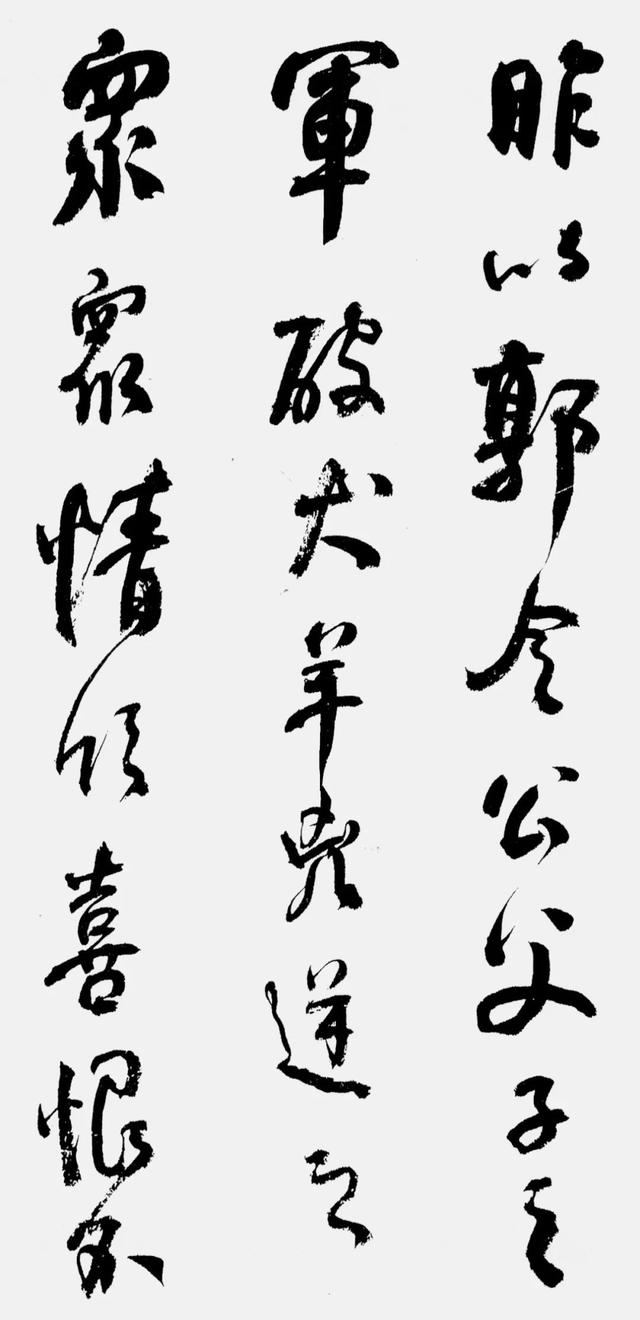 昨以郭令公父子之
軍破犬羊兇逆之
眾眾情欣喜恨不